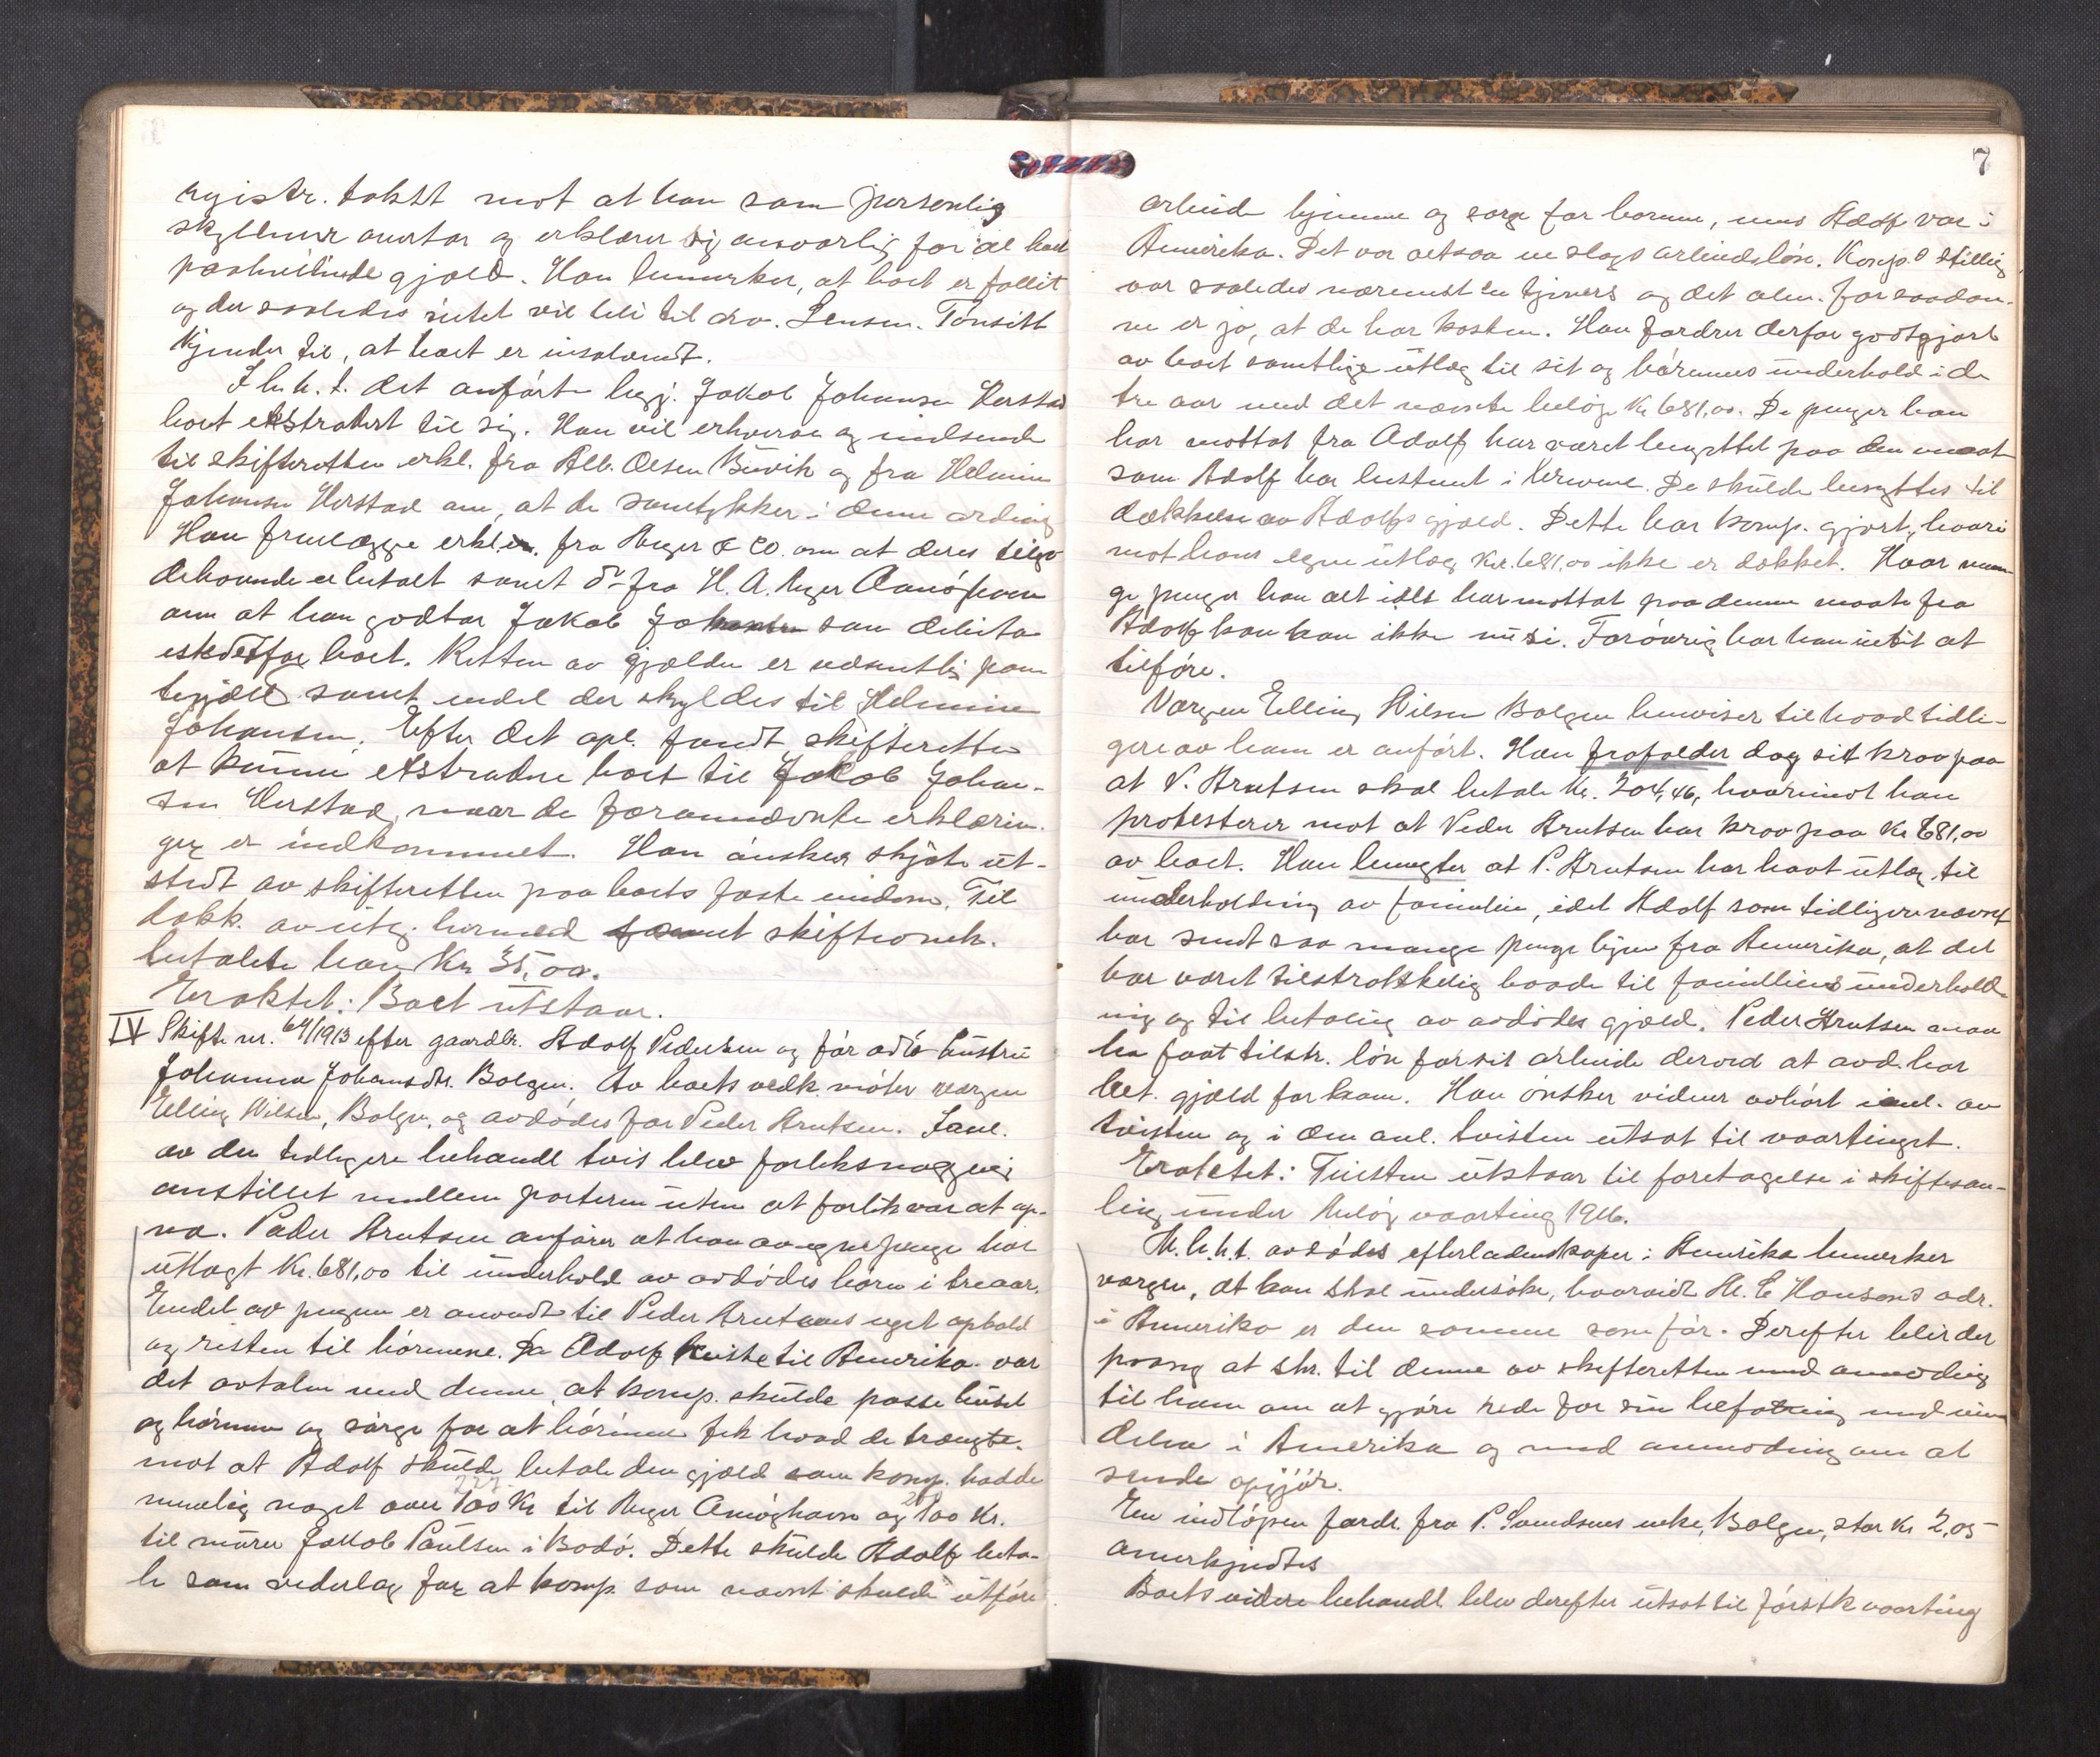 registr. takst mot at han som personlig
skyldner overtar og erklærer sig ansvarlig for al boet
paahvilende gjæld. Han bemerker, at boet er fallit
og der saaledes intet vil bli til arv. Lensm. Tønsith
kjender til, at boet er insolvent.
I h. h. t. det anførte begj. Jakob Johansen Herstad
boet ekstradert til sig. Han vil erhverve og indsende
til skifteretten erkl. fra Alb. Olsen Buvik og fra Helmin
Johansen Herstad om, at de samtykker i denne ordning
Han fremlægge erkl. fra Anger & Co. om at deres tilgo
dehavende er betalt samt do fra H. A. Angel
om at han godtar Jakob Johansen som debitor
istedetfor boet. Resten av gjælden er væsentlig pan
tegjæld samt endel der skyldes til Helmine
Johansen. Efter det opl. fandt skifteretten
at kunne ekstradere boet til Jakob Johan-
sen Herstad, naar de forannævnte erklærin-
ger er indkommet. Han ønsker skjøte ut-
stedt av skifteretten paa boets faste eiendom. Til
dækk. av utg. hermed samt skifteomk.
betalte han Kr 35,00.
Eraktet: Boet utstaar.
IV Skifte nr. 64/1913 efter gaardbr. Adolf Pedersen og før avdø hustru
Johanna Johansdtr. Bolgen. Av boets vedk. møter vergen
Elling Nilsen, Bolgen, og avdødes far Peder Arntsen. I anl.
av den tidligere behandl tvist blev forliksmægling
anstillet mellem parterne uten at forlik var at op-
naa. Peder Arntsen anfører at han av egne penge har
utlagt Kr. 681,00 til underhold av avdødes barn i tre aar.
Endel av pengene er anvendt til Peder Arntsens eget ophold
og resten til børnene. Da Adolf reiste til Amerika var
det avtalen med denne, at komp. skulde passe huset
og børnene og sørge for at børnene fik hvad de trængte.
mot at Adolf skulde betale den gjæld som komp. hadde
nemlig noget over 100 Kr til Angel og 200 Kr.
til murer Jakob Paulsen i Bodø. Dette skulde Adolf beta-
le som vederlag for at komp. som nævnt skulde utføre
7
arbeide hjemme og sørge for barnene, mens Adolf var i
Amerika. Det var altsaa en slags arbeidsløn. Komp.s stilling
var saaledes nærmest en tjeners og det alm. for saadan-
ne er jo, at de har kosten. Han fordrer derfor godtgjort
av boet samtlige utlæg til sit og børnenes underhold i de
tre aar med det nævnte beløp Kr 681,00. De penger han
har mottat fra Adolf har været benyttet paa den maat
som Adolf har bestemt i brevene. De skulde benyttes til
dækkelse av Adolfs gjæld. Dette har komp. gjort, hvori
mot hans egne utlæg Kr. 681,00 ikke er dækket. Hvor man-
ge penger han alt i alt har mottat paa denne maate fra
Adolf kan han ikke nu si. Forøvrig har han intet at
tilføre.
Vergen Elling Nilsen Bolgen henviser til hvad tidli-
gere av ham er anført. Han frafalder dog sit krav paa
at P. Arntsen skal betale Kr. 204,46, hvorimot han
protesterer mot at Peder Arntsen har krav paa Kr 681,00
av boet. Han benegter at P. Arntsen har havt utlæg til
underholdning av familien, idet Adolf som tidligere nævnt
har sendt saa mange penge hjem fra Amerika, at det
har været tilstrækkelig baade til familliens underhold-
ning og til betaling av avdødes gjæld. Peder Arntsen maa
ha faat tilstr. løn for sit arbeide derved at avd. har
bet. gjæld for ham. Han ønsker vidner avhørt i anl. av
tvisten og i den anl. tvisten utsat til vaartinget.
Eraktet: Tvisten utstaar til foretagelse i skiftesam-
ling under vaarting 1916.
M. h. h. t. avdødes efterladenskaper i Amerika bemerker
vergen, at han skal undersøke, hvorvidt H. E Hansens adr.
i Amerika er den samme som før. Derefter blir der
paany at skr. til denne av skifteretten med anmodning
til ham om at gjøre rede for sin befatning med mid
delen i Amerika og med anmodning om at
sende opgjør.
En indløpen fordr. fra P. enke, Bolgen, stor Kr 2,05
anerkjendtes
Boets videre behandl blev derefter utsat til førstk vaarting